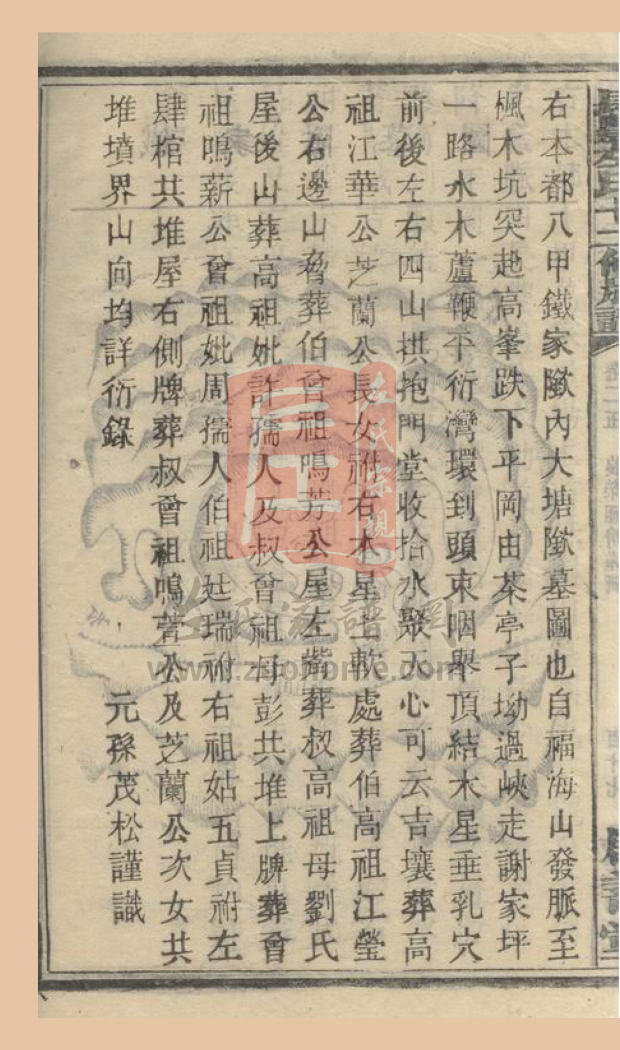 右本都八甲鐵家隞內大塘隞墓圖也自福海山發脈至
楓木坑突起高峯跌下平岡由茶亭子坳過峽走謝家坪
一路水木蘆鞭平衍灣環到頭束咽舉頂結木星垂乳穴
前後左右四山拱抱門堂收拾水聚天心可云吉壤葬高
祖江華公芝蘭公長女祔右木星上軟處葬伯高祖江瑩
公右邊山脅葬伯曾祖鳴芳公屋左嘴葬叔高祖母劉氏
屋後山葬高祖妣許孺人及叔曾祖母彭共堆上牌葬曾
祖鳴薪公曾祖妣周孺人伯祖廷瑞祔右祖姑五貞祔左
肆棺共堆屋右側牌葬叔曾祖鳴萱公及芝蘭公次女共
堆墳界山向均詳衍錄
元孫茂松謹識
www.zuohome.com